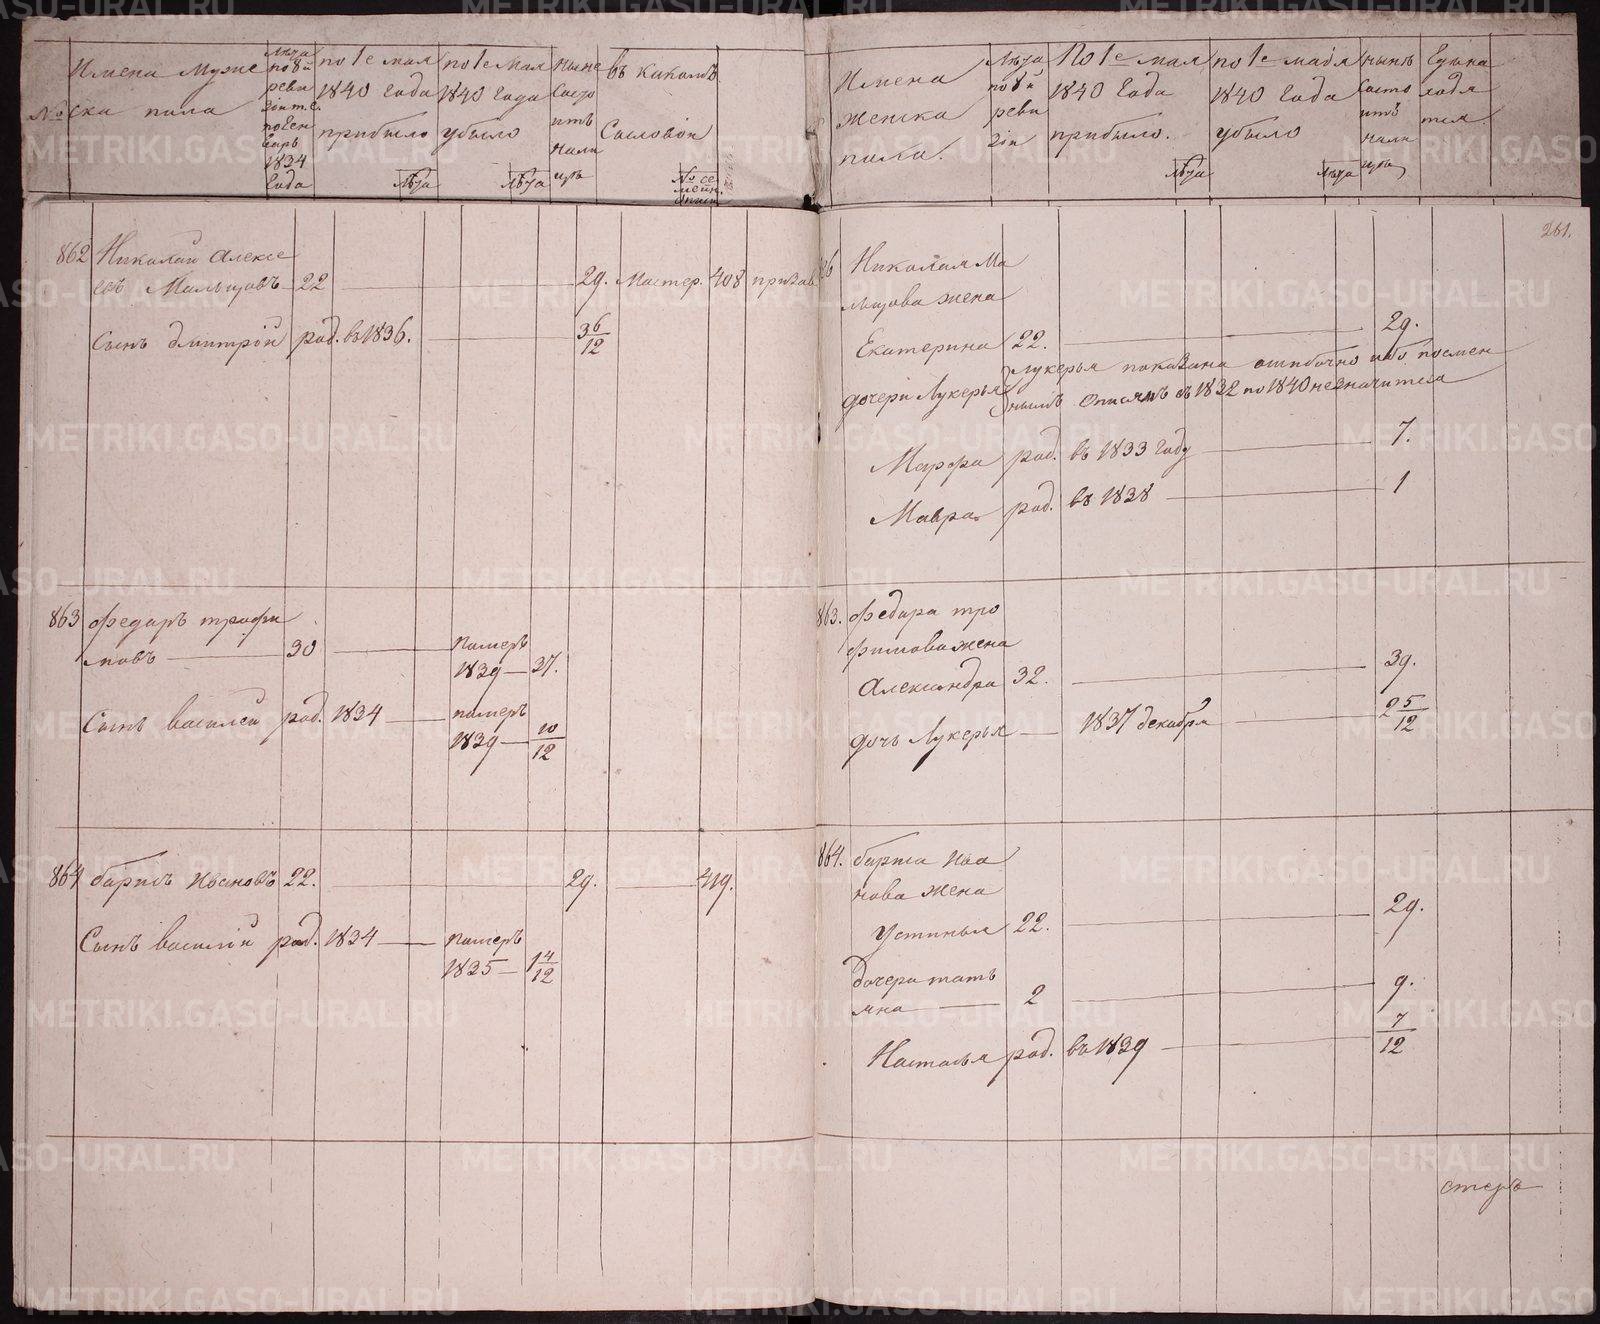 №
Имена Мужескa пола
лѣта по 8й ревизiи т.е. по Генварь 1834 года
по 1е мая 1840 года прибыло
лѣта
по 1е Мая 1840 года убыло
лѣта
ныне состоитъ на лицъ
въ какомъ Сословiи
№ семейн. списк.
862 Николай Алексе
евъ Мальцовъ 22 29. Мастер. 408
Сынъ Дмитрiй род. въ 1836. 3 6/12
863 Федаръ трофи
мовъ 30 памеръ
1839 37.
Сынъ василей род. 1834 памеръ
1839 10/12
864 барисъ Ивановъ 22. 29. 419.
Сынъ василiй род. 1834 памеръ
1835 1 4/12
Имена женска пола.
Лѣта по 8й ревизiи
По 1е мая 1840 года прибыло.
лѣта
по 1е майя 1840 года убыло
лѣта
нынѣ состоитъ на лицъ
261.
Николая Ма
льцова жена
Екатерина 22. 29.
дочери Лукерья Лукерья показана ошибочно ибо посмен
нымъ Описямъ съ 1832 по 1840 незначитса
Марфа род. въ 1833 году 7.
Мавра род. въ 1838 1
863. Федара тро
фимова жена
Александра 32. 39.
дочь Лукерья 1837 декабря 2 5/12
864. бариса Ива
нова жена
Устинья 22. 29.
дочери тать
яна 2 9.
Насталья род. въ 1839 7/12